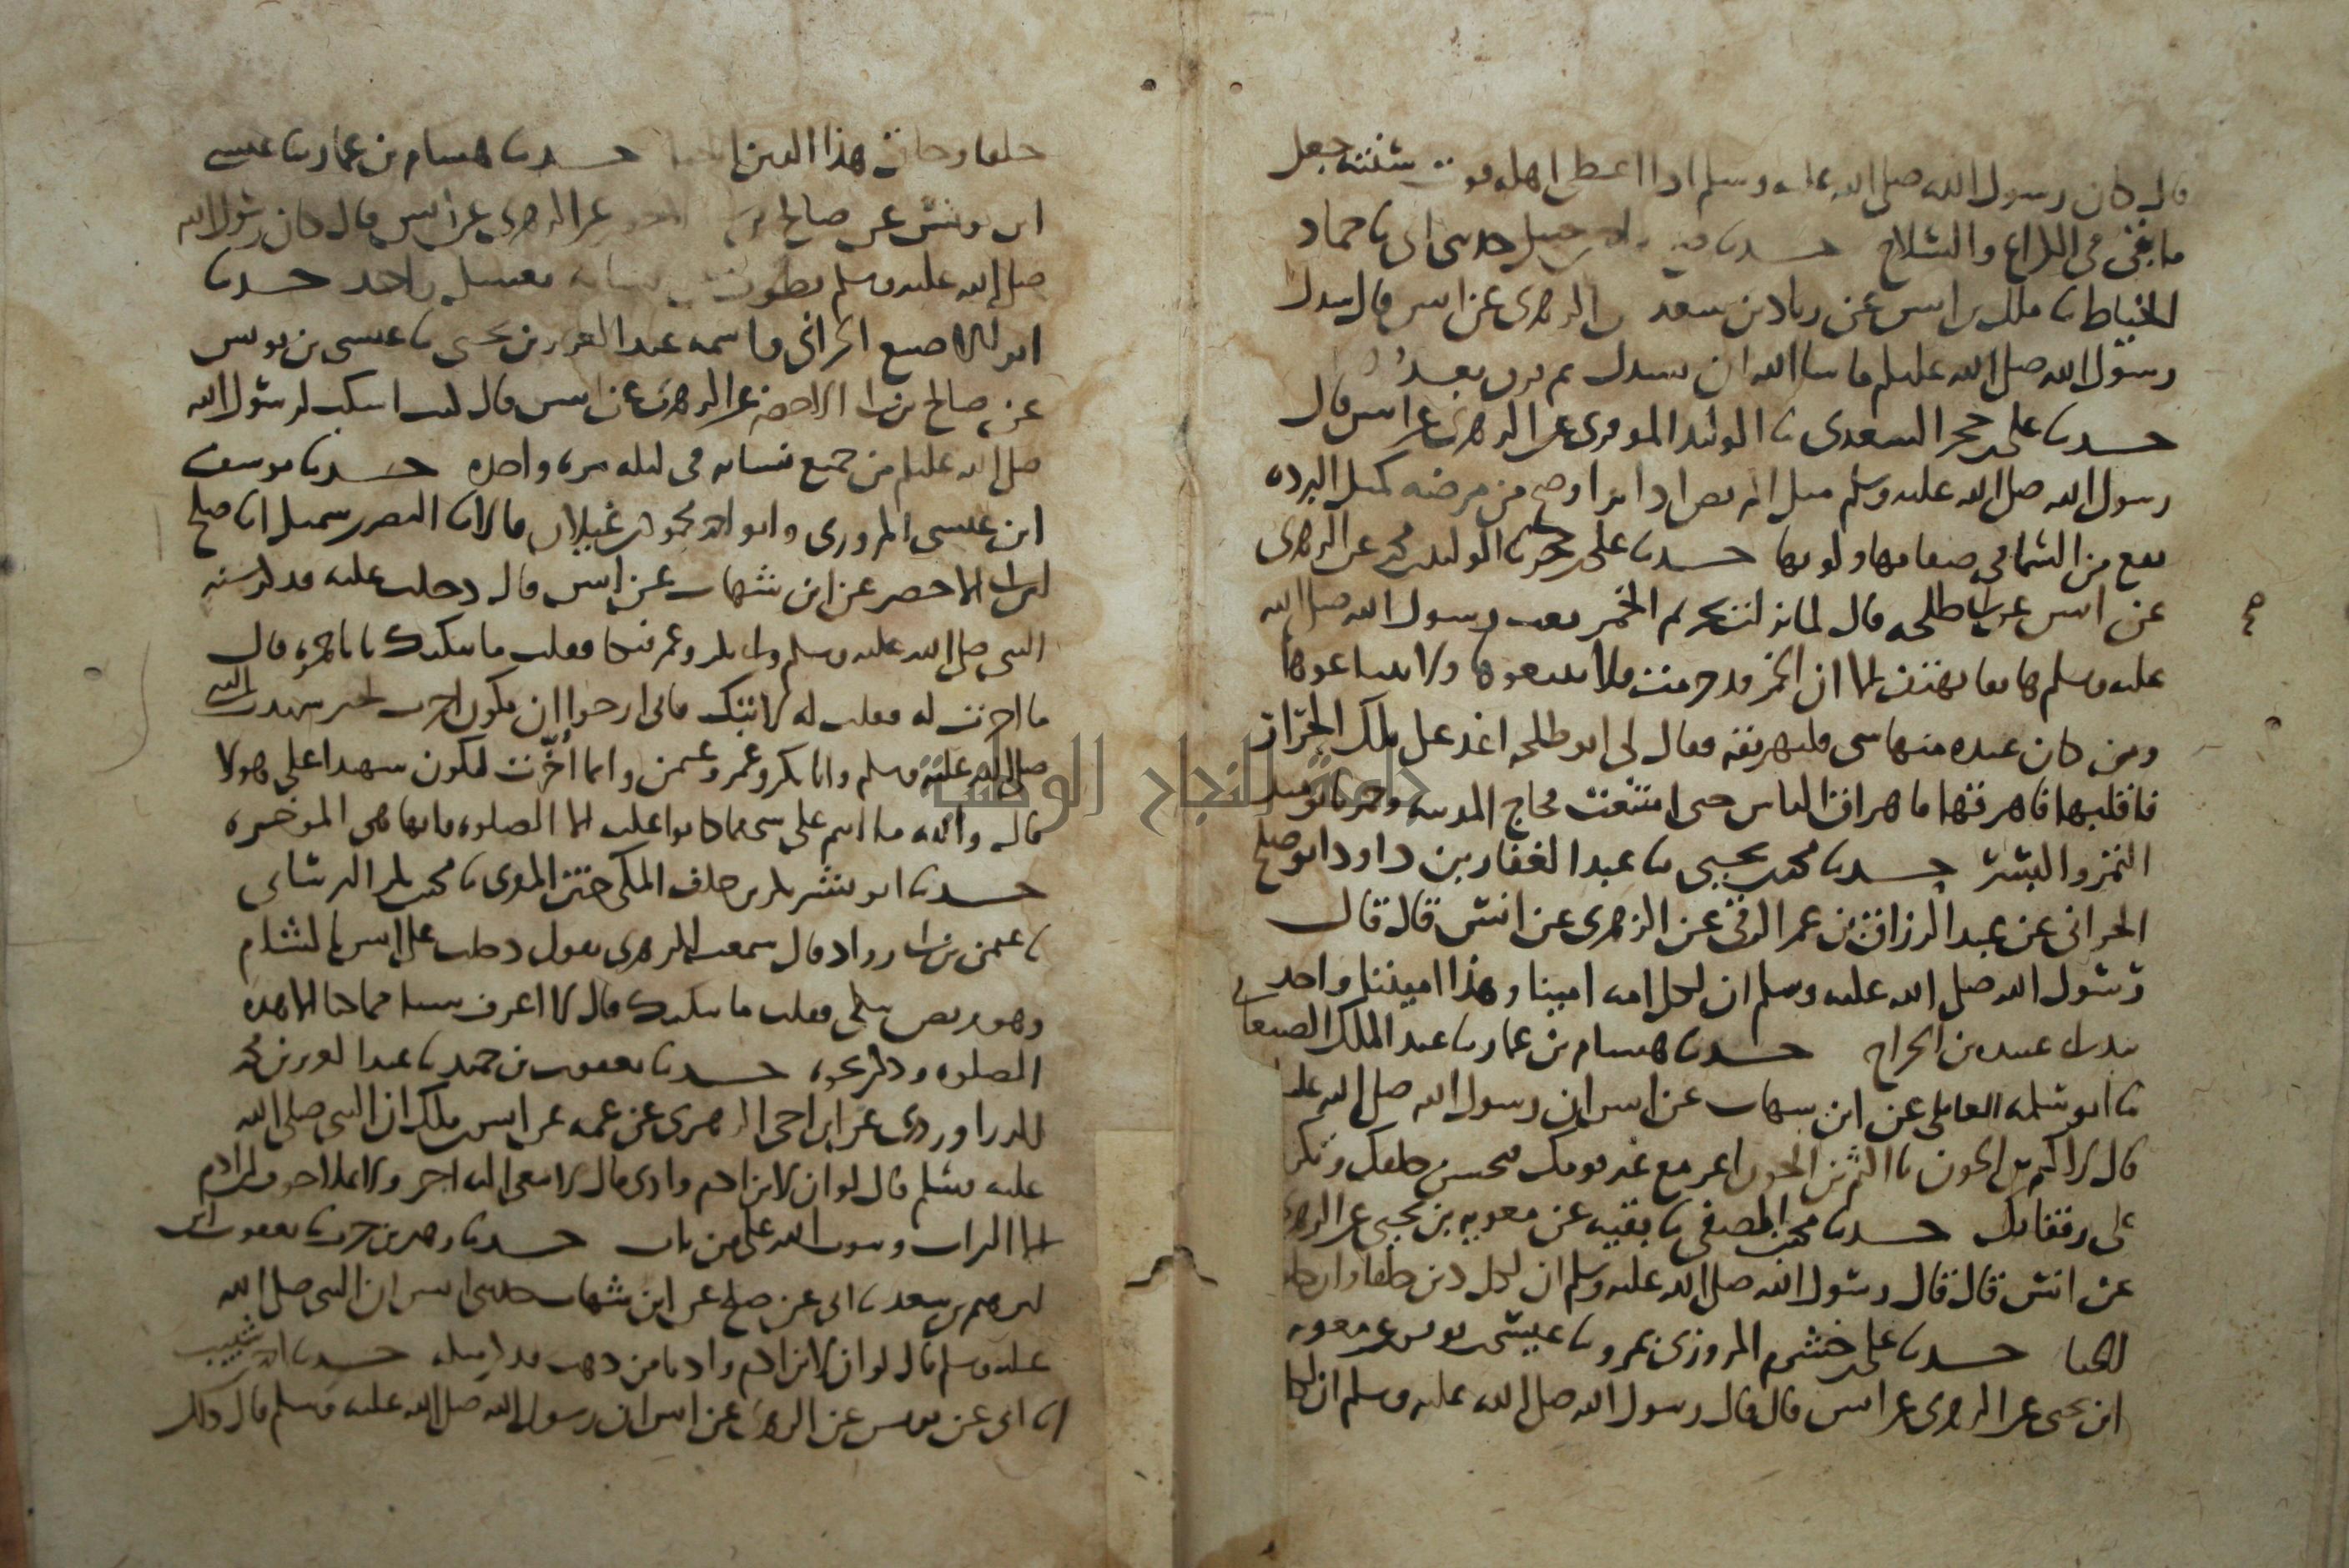 قال كان رسول الله صلى الله عليه وسلم اذا اعطى اهله قوت سنته جعل
ما بقى فى الكراع والسلاح حدثنا بن حنبل حدثنى ابى نا حماد
الخياط نا ملك بن انس عن زياد بن سعد الزهرى عن انس قال سدل
رسول الله صلى الله عليه وسلم ما شا الله ان يسدل ثم فرق بعد
حدثنا على بن حجر السعدى نا الوليد الموقرى عن الزهرى عن انس قال
رسول الله صلى الله عليه وسلم مثل المريض اذا برا وصح من مرضه كمثل البرده
تقع من السما فى صفايها ولونها حدثنا على بن حجر نا الوليد بن محمد عن الزهرى
عن انس عن ابى طلحه قال لما نزلت تحريم الخمر بعث رسول الله صلى الله
عليه وسلم هاتفا يهتف الا ان الخمر قد حرمت فلا تبيعوها ولا تبتاعوها
ومن كان عنده منها شى فليهرقه فقال لى ابو طلحه اغد على تلك الجرار
فاقلبها فاهرقتها فاهراق الناس حتى امتنعت فجاج المدينه وخمر يوميد
التمر والبسر حدثنا محمد بن يحيى نا عبد الغفار بن داود ابو صلح
الحرانى عن عبد الرزاق بن عمر الدمشقى عن الزهرى عن انس قال قال
رسول الله صلى الله عليه وسلم ان لكل امه امينا وهذا اميننا واحد
بيد ابى عبيده بن الجراح حدثنا هشام بن عمار نا عبد الملك الصنعانى
نا ابو سلمه العاملى عن ابن شهاب عن انس ان رسول الله صلى الله عليه
قال لاكثم بن الجون يا اكثم بن الجون اغز مع غير قومك يحسن خلقك وتكرم
على رفقايك حدثنا محمد بن المصفى نا بقيه عن معويه بن يحيى عن الزهرى
عن انس قال قال رسول الله صلى الله عليه وسلم ان لكل دين خلقا وان خلق
الحيا حدثنا على بن خشرم المروزى نا عيسى بن يونس عن معويه
ابن يحيى عن الزهرى عن انس قال قال رسول الله صلى الله عليه وسلم ان لكل
خلقا وخلق هذا الدين الحيا حدثنا هشام بن عمار نا عيسى
ابن يونس عن صالح بن الاخضر عن الزهرى عن انس قال كان رسول الله
صلى الله عليه وسلم يطوف على نسايه بغسل واحد حدثنا
ابو الاصبغ الحرانى واسمه عبد العزيز بن يحيى نا عيسى بن يونس
عن صالح بن ابى الاخضر عن الزهرى عن انس قال كنت اسكب لرسول الله
صلى الله عليه وسلم من جميع نسايه فى ليله مره واحده حدثنا يوسف
ابن عيسى المروزى وابو احمد محمود بن غيلان قالا نا النضر بن شميل انا صلح
ابن ابى الاخضر عن ابن شهاب عن انس قال دخلت عليه
النبى صلى الله عليه وسلم وابى بكر وعمر فبكا فقلت ما يبكيك يا با حمزه قال
ما اخرت له فقلت له لا تبك فانى ارجوا ان يكون اخرت لخير شهدت النبى
صلى الله عليه وسلم وابا بكر وعمر وعثمن وانما اخرت لتكون شهيدا على هولا
قال والله ما انتم على شى مما كانوا عليه الا الصلوه فانها هى الموخره
حدثنا ابو بشر بكر بن خلف المكى ختن المقرى نا محمد بن بكر البرسانى
نا عثمن بن ابى رواد قال سمعت الزهرى يقول دخلت على انس بالشام
وهو يبكى فقلت ما يبكيك قال لا اعرف شيا مما كنا الا هذه
الصلوه وذكر نحوه حدثنا يعقوب بن حميد نا عبد العزيز بن محمد
الدراوردى عن ابن اخى الزهرى عن عمه عن انس بن ملك ان النبى صلى الله
عليه وسلم قال لو ان لابن ادم وادى مال لابتغى اليه اخر ولا يملا جوف ابن ادم
الا التراب ويتوب الله على من تاب حدثنا زهير بن حرب نا يعقوب بن
ابرهيم بن سعد نا ابى عن صلح عن ابن شهاب حدثنى انس ان النبى صلى الله
عليه وسلم قال لو ان لابن ادم واديا من ذهب فذكر مثله حدثنا احمد بن شبيب
نا ابى عن يونس عن الزهرى عن انس ان رسول الله صلى الله عليه وسلم قال ذلك